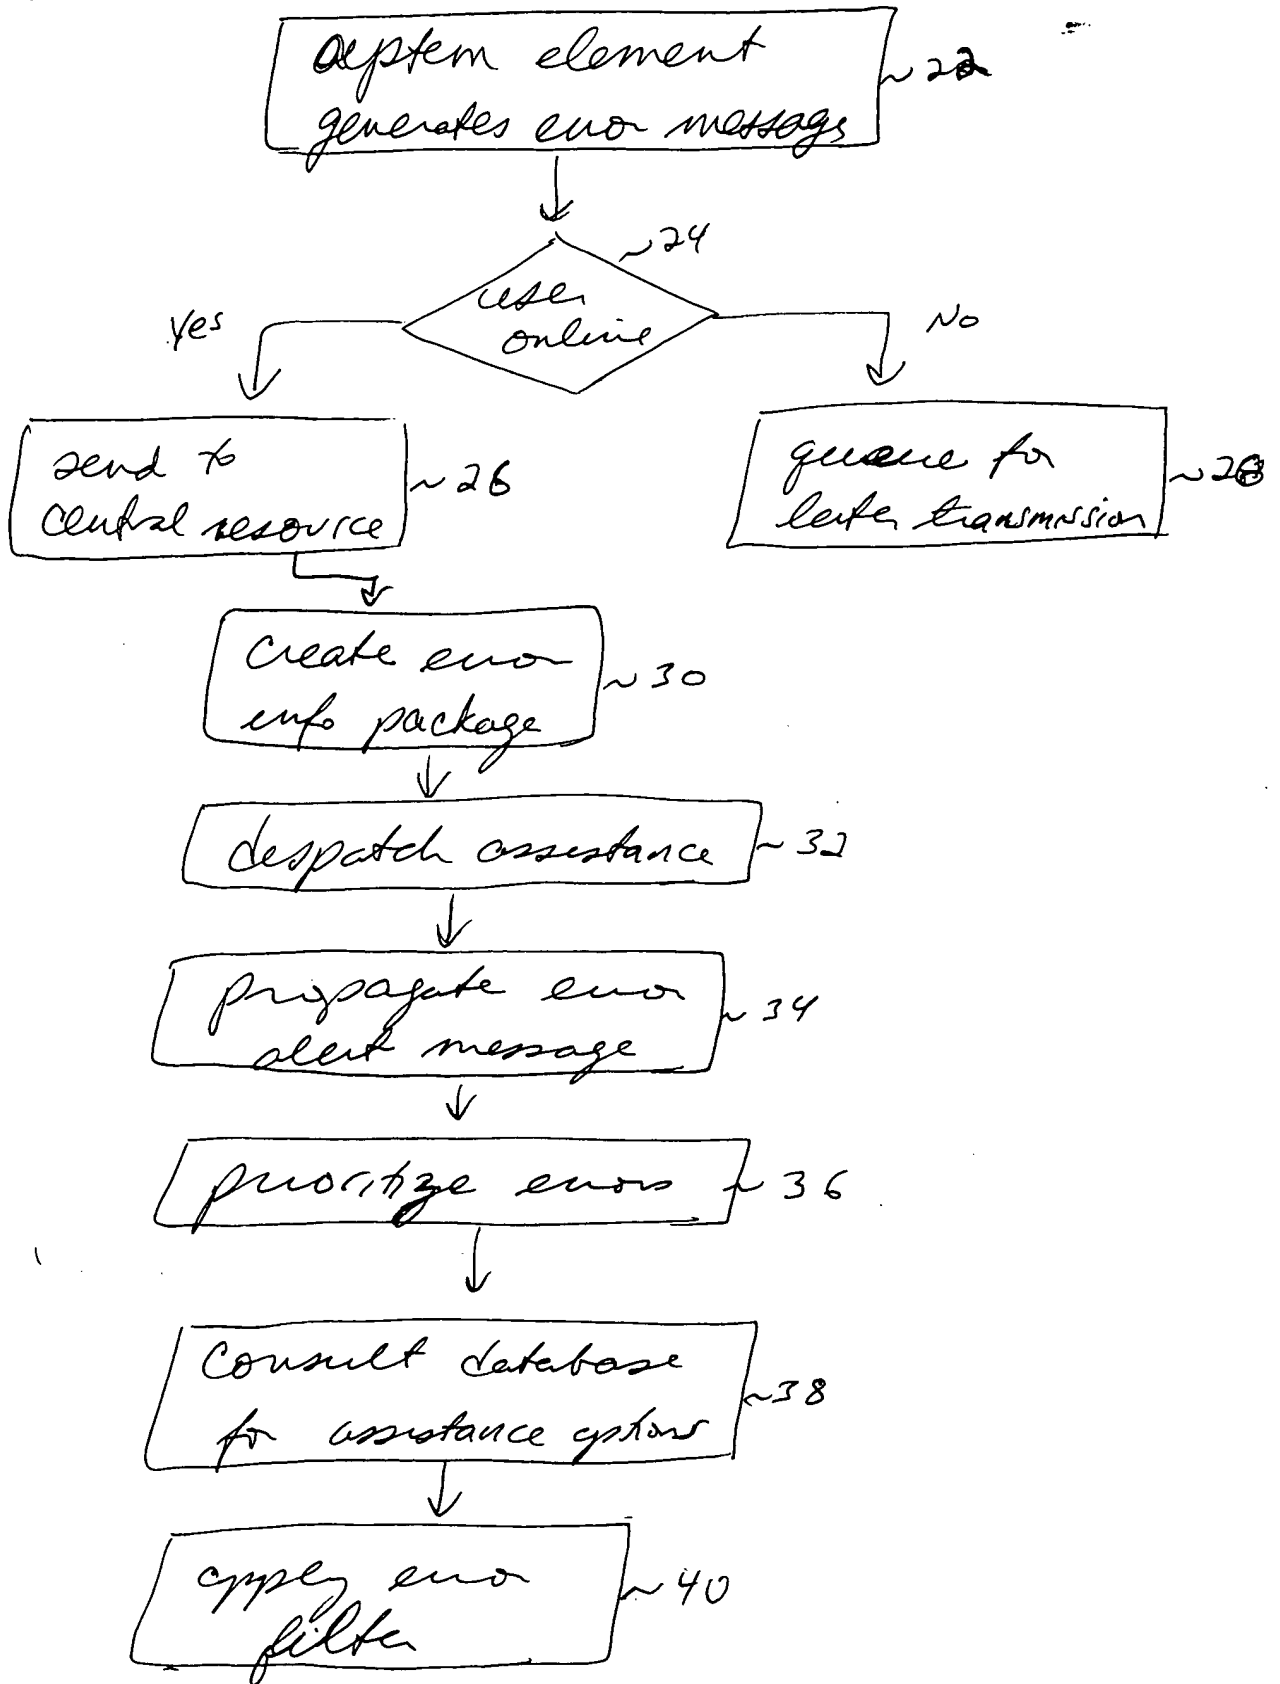 system element
generates error message
~22
~24
user
online
Yes
No
send to
central resource
~26
queue for
later transmission
~28
create error
info package
~30
despatch assistance
~32
propagate error
alert message
~34
prioritize errors
~36
consult database
for assistance options
~38
apply error
filter
~40